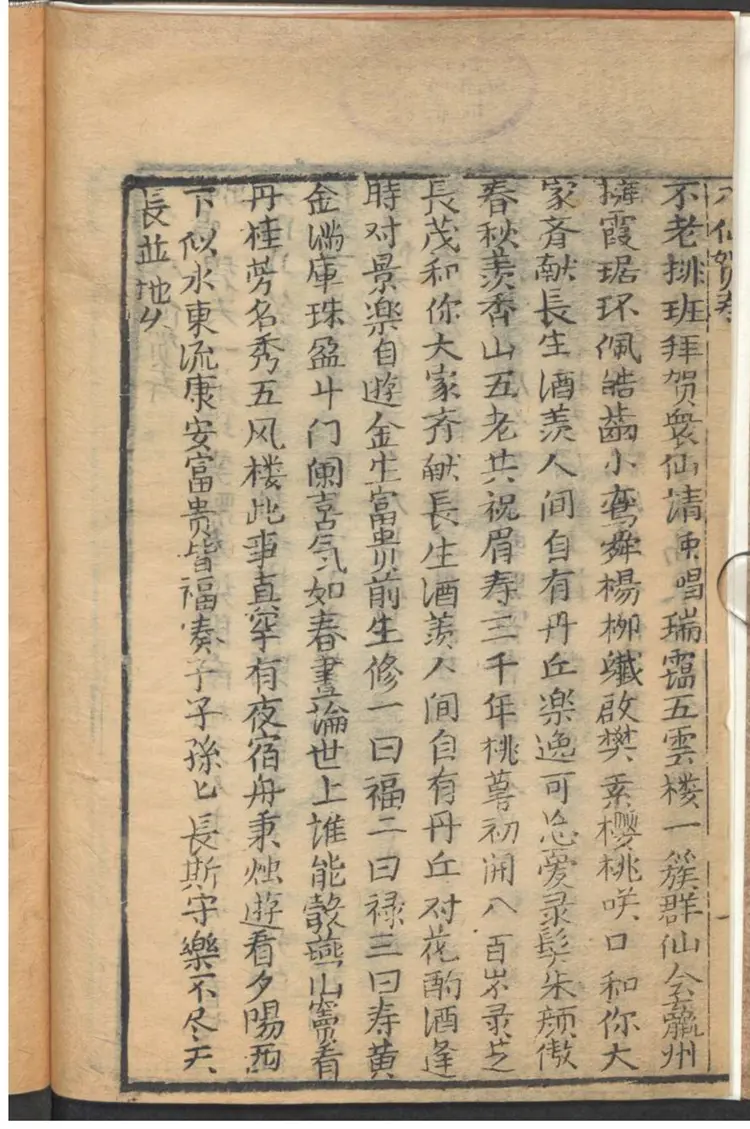 八仙贺寿
不老排班拜贺衆仙请東唱瑞靄五雲楼一簇群仙会瀛州
擁霞琚环佩皓齒小鸾舜楊柳纖啟樊素櫻桃咲口和你大
家斉献長生酒羨人间自有丹丘楽逸可怂爱录髩朱顔傲
春秋羨香山五老共祝眉寿三千年桃萼初開八百岁录芝
長茂和你大家斉献長生酒羨人间自有丹丘对花酌酒逢
時对景楽自遊金生富貴前生修一曰福二曰禄三曰寿黄
金滿庫珠盈斗门阑喜气如春晝論世上誰能彀燕山竇看
丹桂芳名秀五风楼此事真罕有夜宿舟秉烛遊看夕陽西
下似水東流康安富贵皆福凑子子孫匕長斯守樂不尽天
長並地久